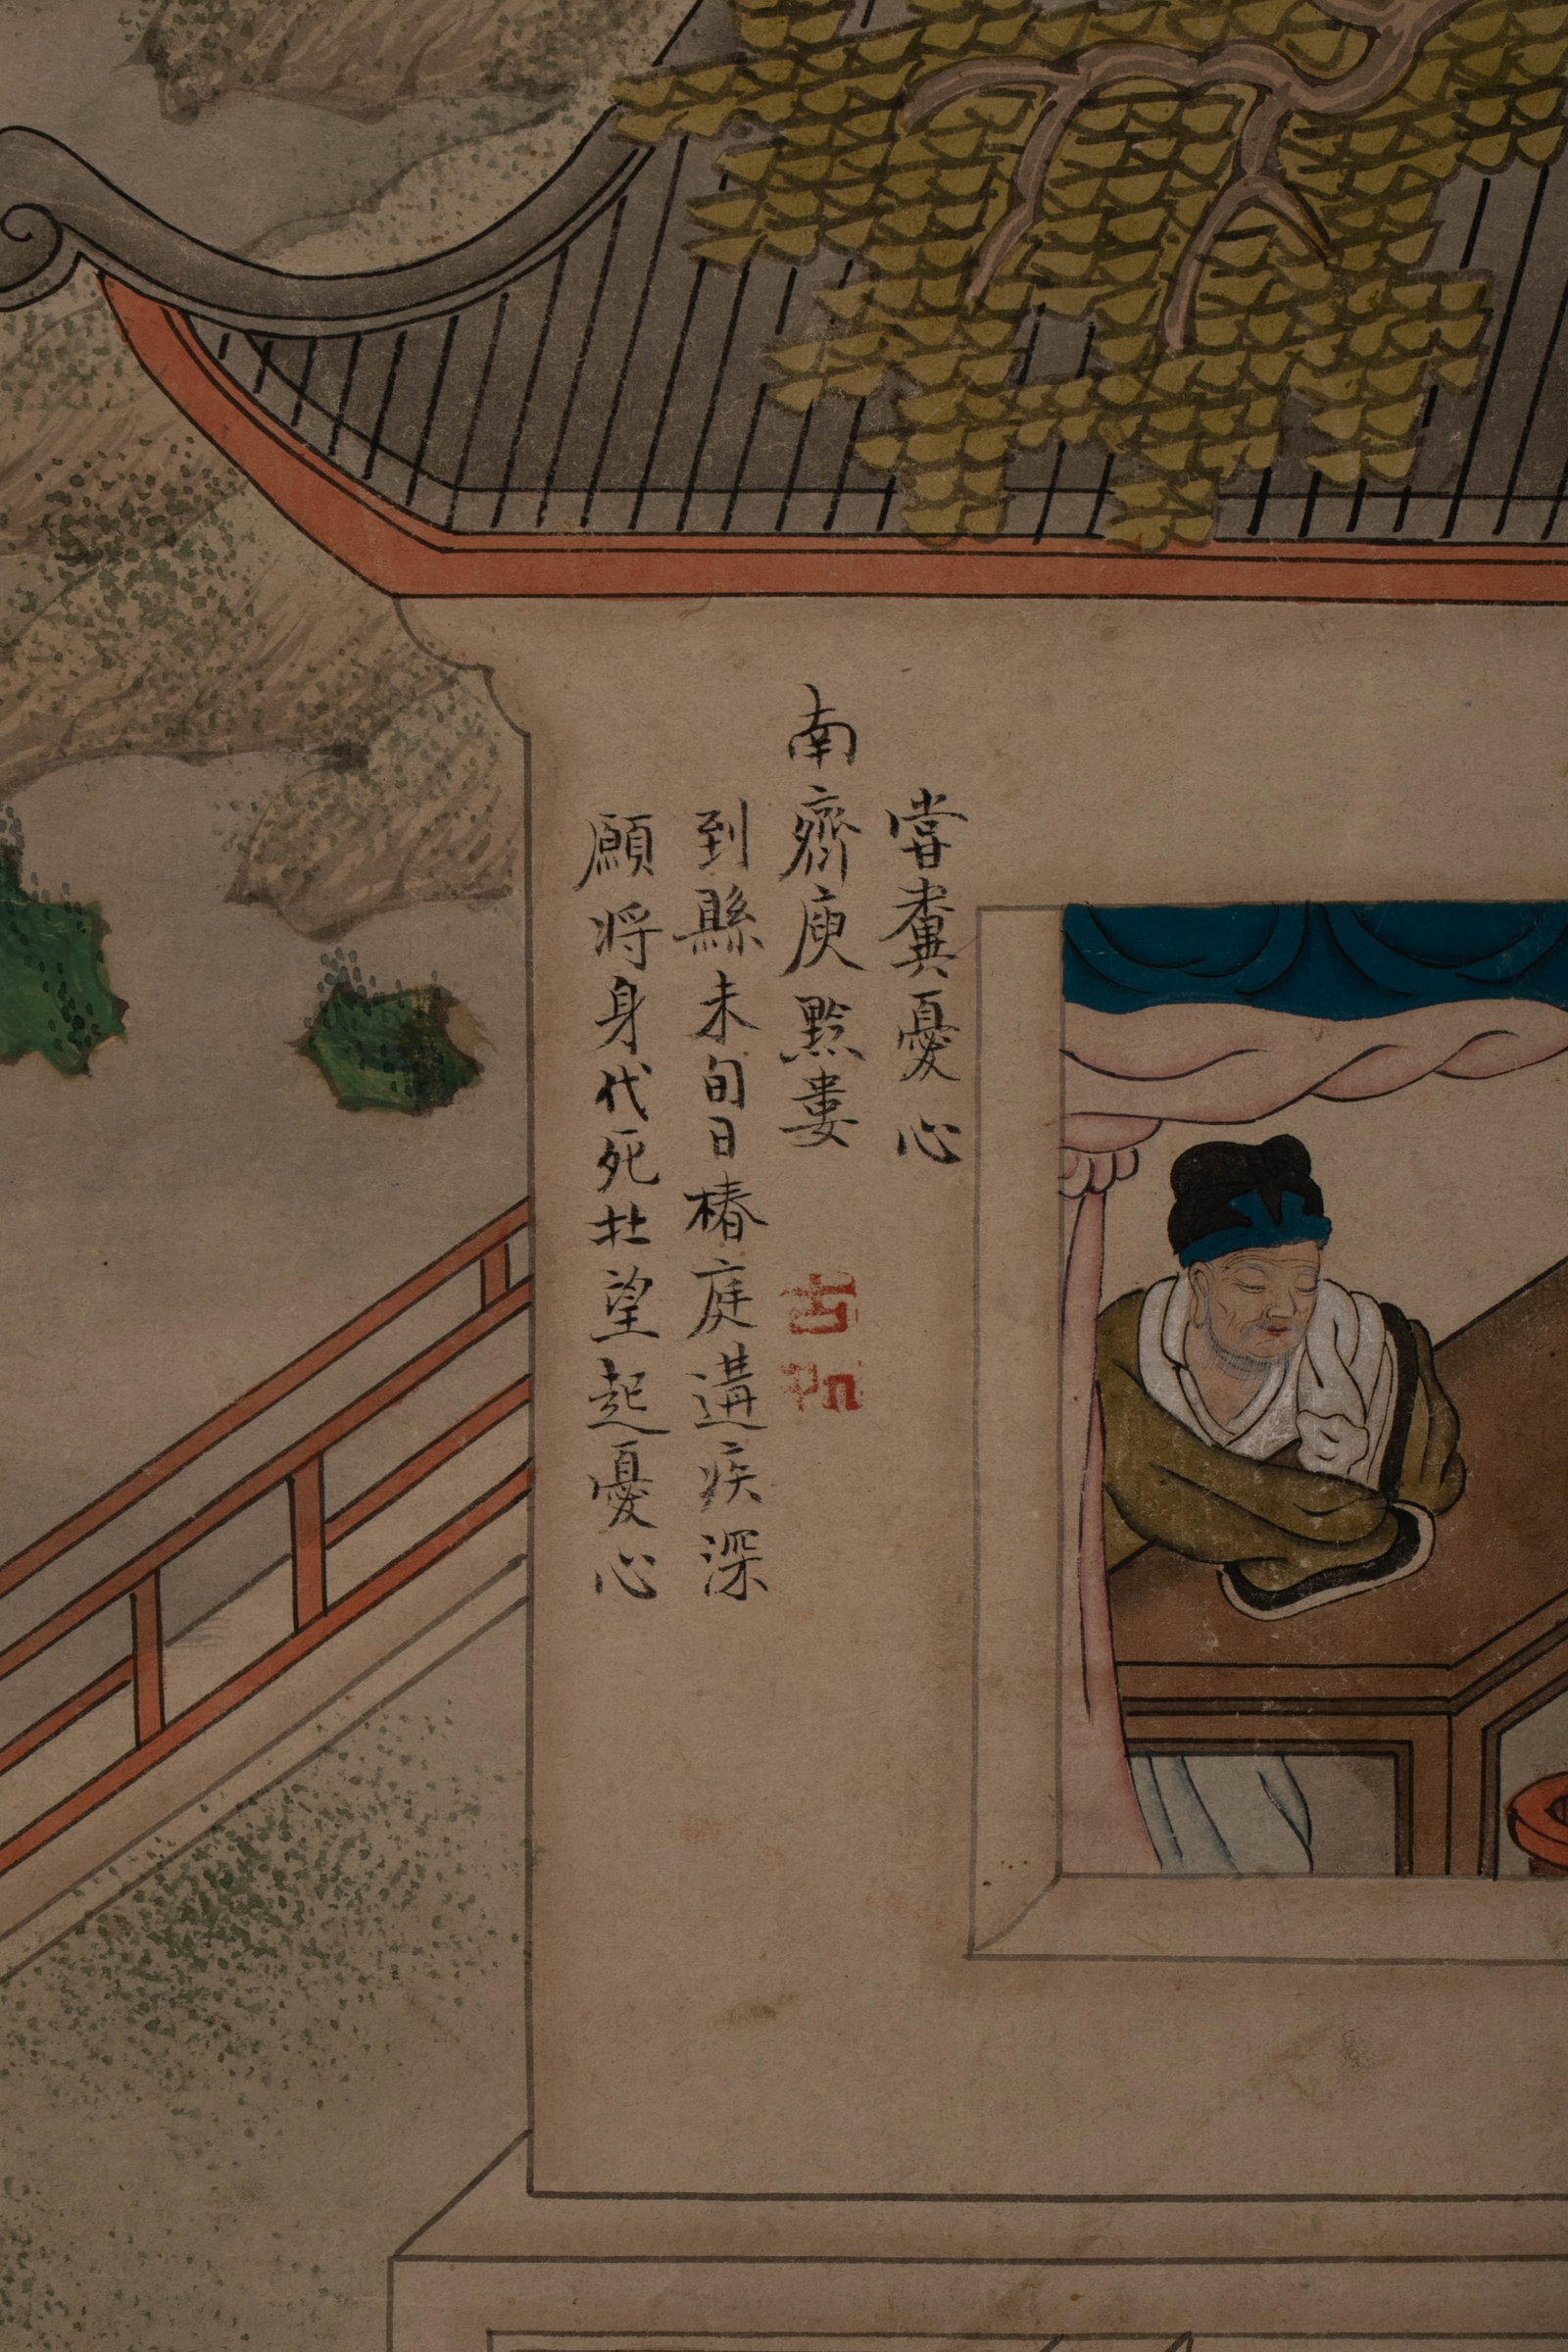 嘗糞憂心
南齊庾黔婁
到縣未旬日椿庭遘疾深
願將身代死北望起憂心